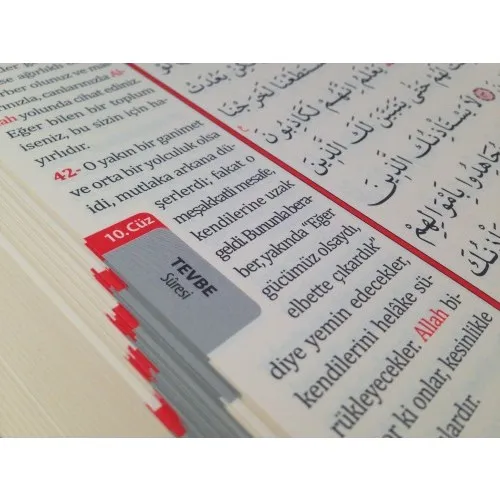 se ağırlıklı
rber olunuz ve ma
rınızla, canlarınızla Al-
lah yolunda cihat ediniz.
Eğer bilen bir toplum
iseniz, bu sizin için ha-
yırlıdır.
42- O yakın bir ganimet
ve orta bir yolculuk olsa
idi, mutlaka arkana dü-
şerlerdi; fakat o
meşakkatli mesafe,
kendilerine uzak
geldi. Bununla bera-
ber, yakında "Eğer
gücümüz olsaydı,
elbette çıkardık"
diye yemin edecekler,
kendilerini helâke sü-
rükleyecekler. Allah bi-
er ki onlar, kesinlikle
lardır.
10. Cüz
TEVBE
Sûresi
بَعُدَتْ
اسْتَطَعْنَا لَخَرَجْنَا
يَعْلَمُ اِنَّهُمْ لَكَاذِبُونَ
لَهُمْ حَتّٰى يَتَبَيَّنَ لَكَ الَّذِينَ
لَا يَسْتَأْذِنُكَ الَّذِينَ
يُجَاهِدُوا بِاَمْوَالِهِمْ